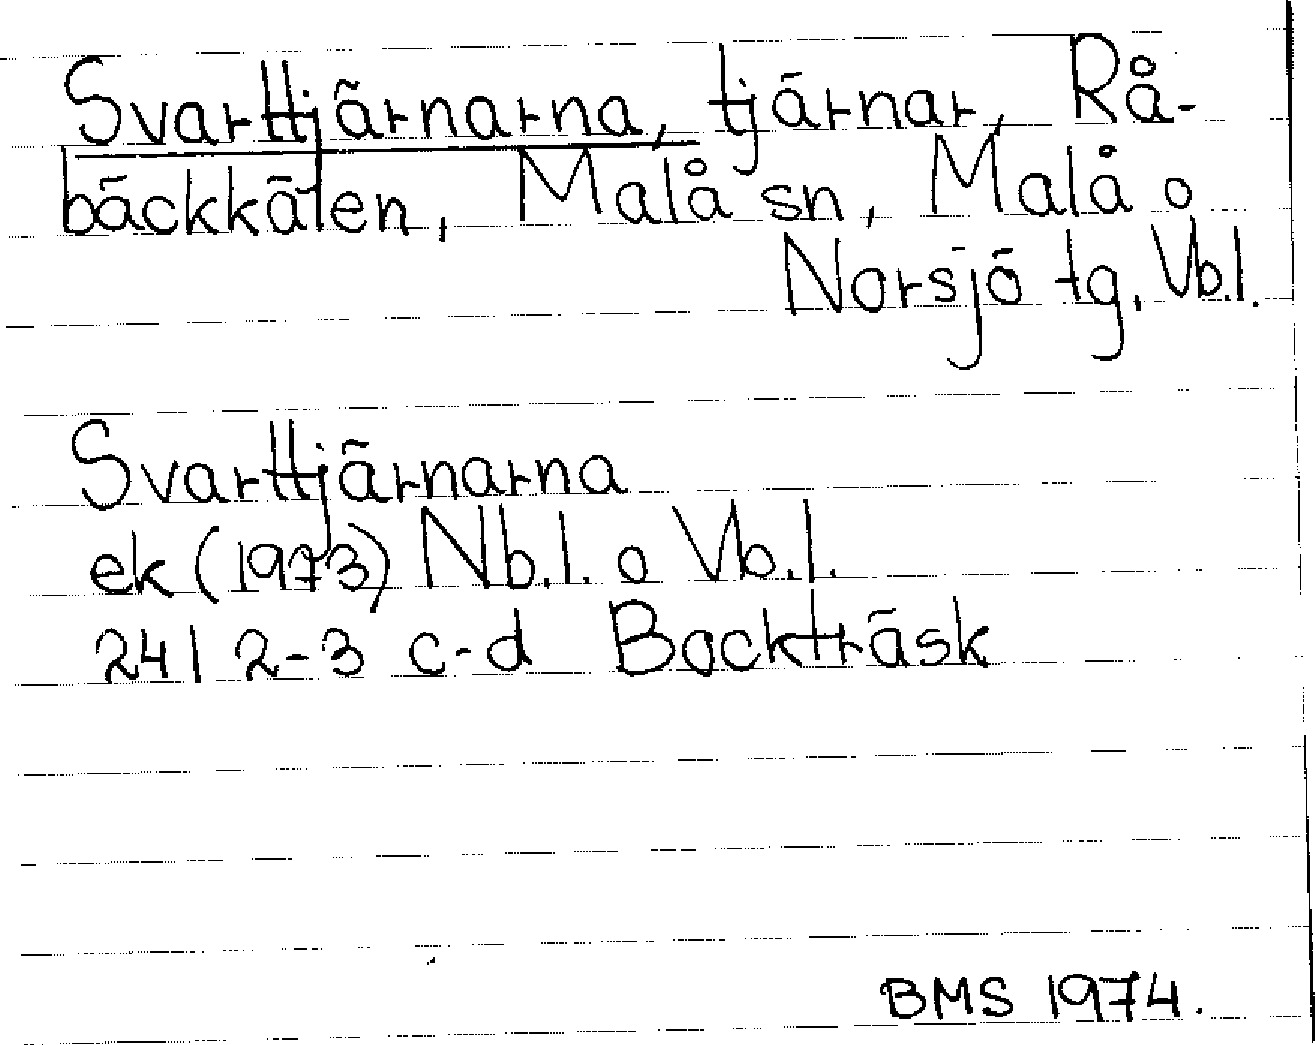 Svarttjärnarna, tjärnar, Rå-
bäckkälen, Malå sn, Malå o
Norsjö tg, Vb.l.
Svarttjärnarna
ek (1973) Nb.l. o Vb.l.
24 I 2-3 c-d Bockträsk
BMS 1974.